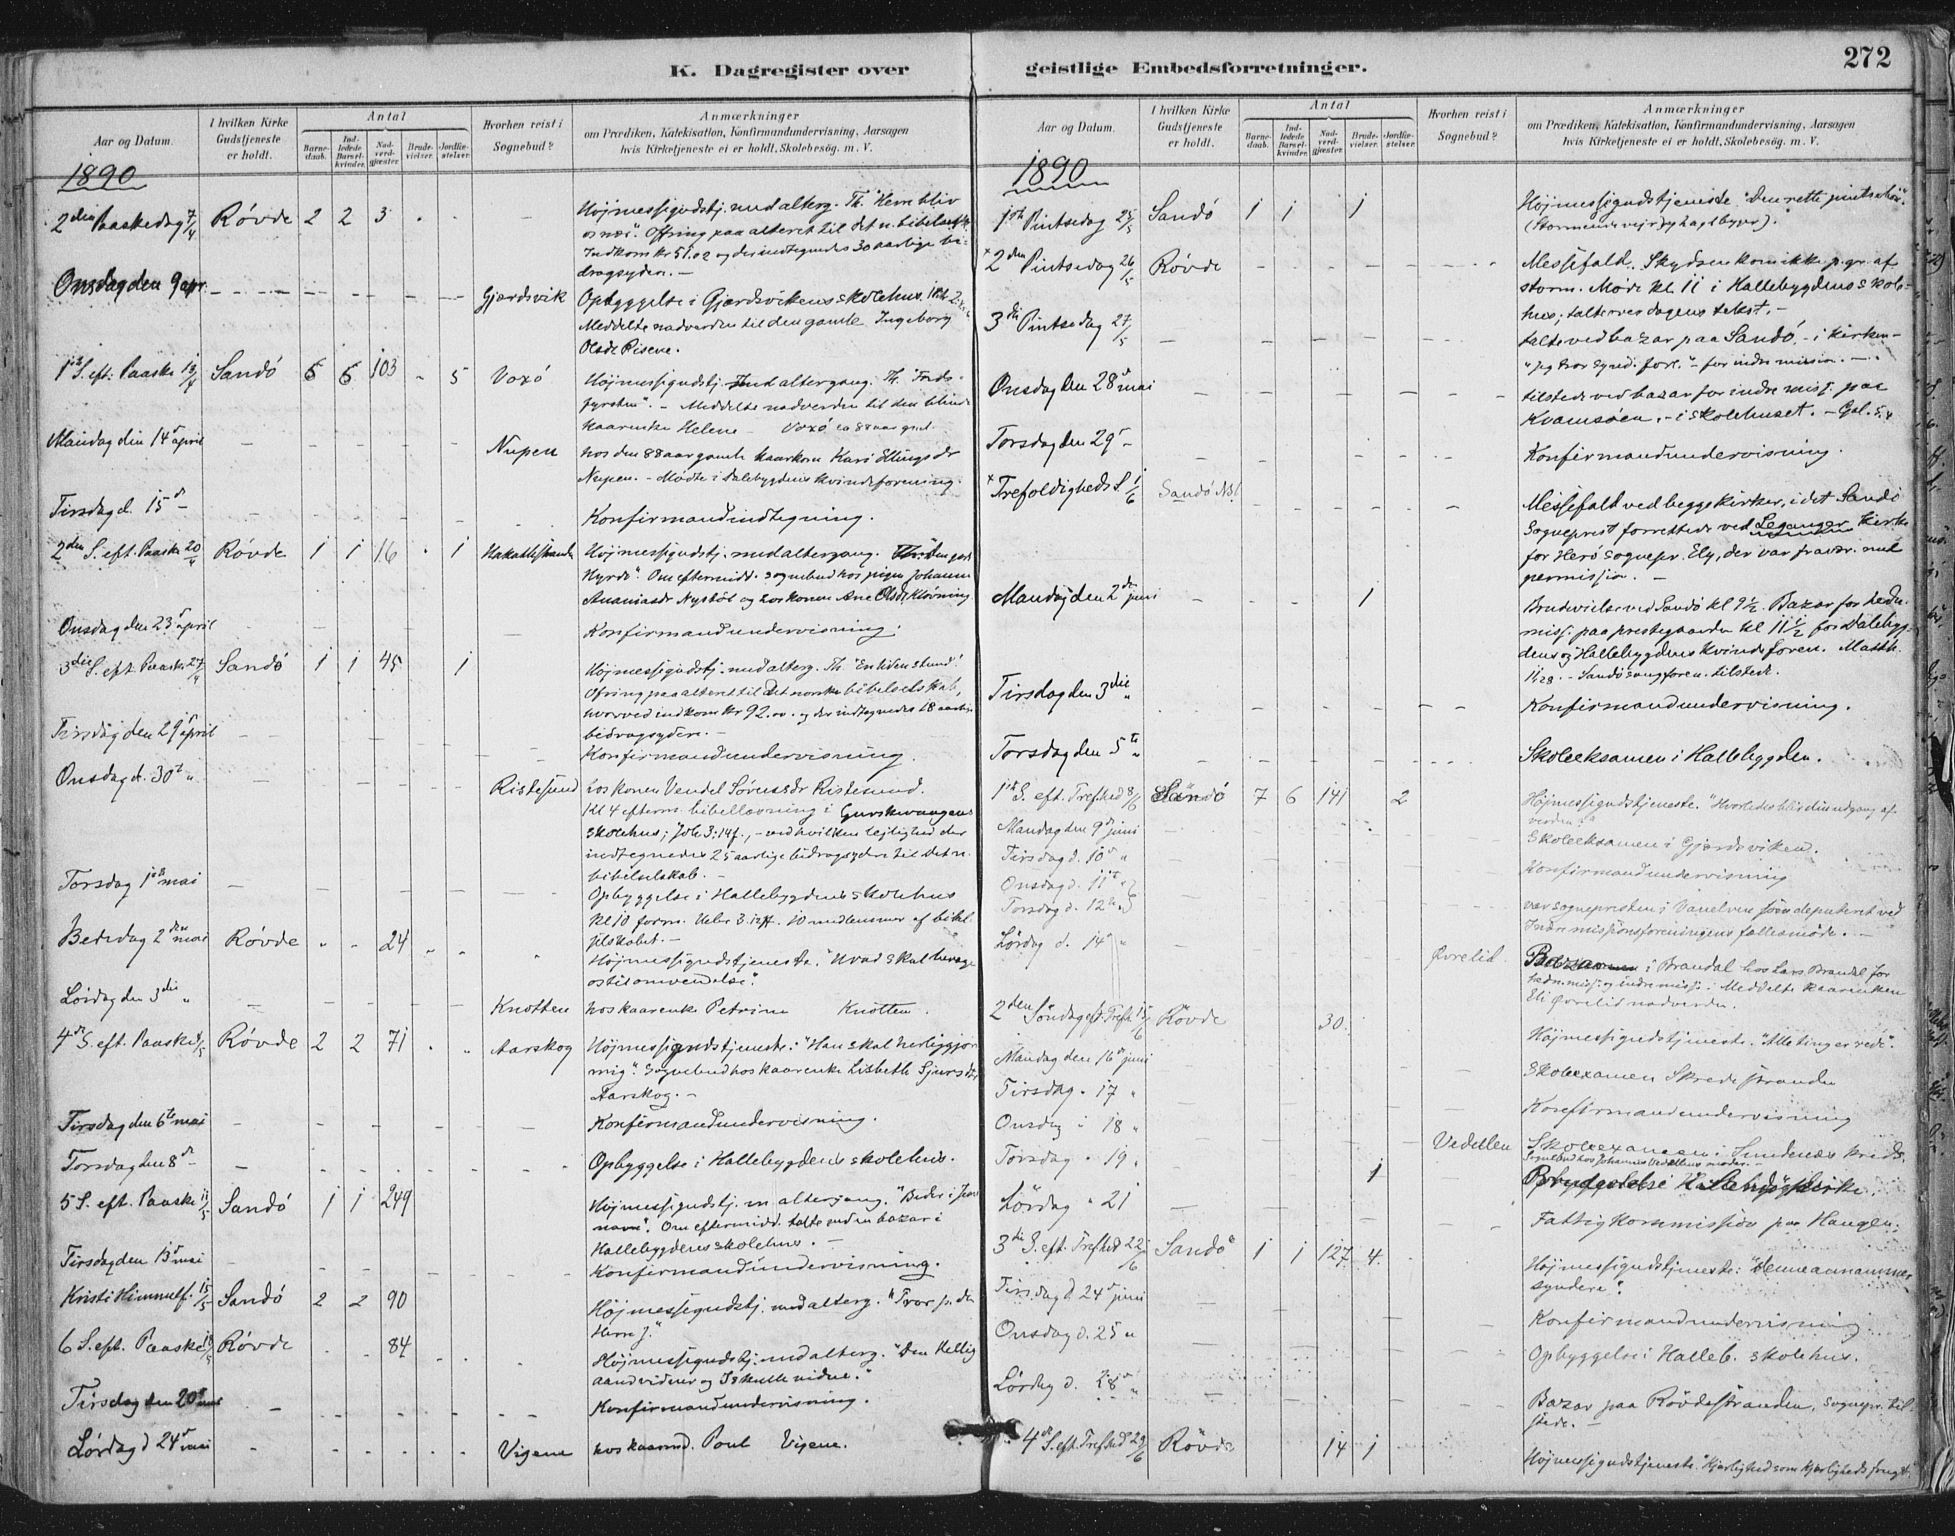 K. Dagregister over geistlige Embedsforretninger.
272
Aar og Datum.
I hvilken Kirke Gudstjeneste er holdt.
Antal
Barnedaab.
Indledede Barselkvinder.
Nadverdgjæster.
Brudevielser.
Jordfæstelser.
Hvorhen reist i Sognebud?
Anmærkninger
om Prædiken, Katekisation, Konfirmandundervisning, Aarsagen
hvis Kirketjeneste ei er holdt, Skolebesøg. m. V.
1890
2den Paaskedag 7/4 Røvde 2 2 3 Højmessegudstj. med alterg. Th. "Herre bliv
os nær". Ofring paa alteret til det n. bibelselsk.
Indkom kr 51.02 og der indtegnedes 30 aarlige bi-
dragsydere. –
Onsdag den 9 apr. Gjærdsvik Opbyggelse i Gjærdsvikens skolehus.
Meddelte nadverden til den gamle Ingeborg
Olsdr Risene.
1ste S. eft. Paaske 13/4 Sandö 6 6 103 5 Voxö Højmessegudstj. med altergang. Th. "Freds-
fyrsten". – Meddelte nadverden til den blinde
kaarenke Helene Voxö
Mandag den 14de april Nupen hos den 88 aar gamle kaarkone Kari Ellingsdr
Nupen. – Mödte i Dalebygdens kvindeforening.
Tirsdag d. 15de – Konfirmandindtegning.
2den S. eft. Paaske 20/4 Røvde 1 1 16 1 Hakallestrande Højmessegudstj. med altergang. Th: "Den gode
Hyrde". Om eftermidd. sognebud hos pigen Johanne
Ananiasdr Nystöl og hos konen Ane Olsdr Klövning
Onsdag den 23de april Konfirmandundervisning.
3die S. eft. Paaske 27/4 Sandö 1 1 45 1 Højmessegudstj. med alterg. Th. "En liden stund".
Ofring paa alteret til Det norske bibelselskab,
hvorved indkom kr 92.00. og der indtegnedes 18 aarlige
bidragsydere. –
Tirsdag den 29de april Konfirmandundervisning.
Onsdag d. 30te " Ristesund hos konen Vendel Sørensdr Ristesund.
Kl 4 efterm. bibellæsning i Gurskevaagens
skolehus; Joh. 3:14f., – ved hvilken lejlighed der
indtegnedes 25 aarlige bidragsydere til Det n.
bibelselskab. –
Torsdag 1ste mai Opbyggelse i Hallebygdens skolehus
kl 10 form. Hebr. 3. 12ff. 10 medlemmer af bibel-
selskabet. –
Bededag 2den mai Røvde " - 24 Højmessegudstjeneste. "Hvad skal bevæge
os til omvendelse".
Lördag den 3die " Knotten hos kaarenke Petrine Knotten.
4de S. eft. Paaske 4/5 Røvde 2 2 71 Aarskog Højmessegudstjeneste: "Han skal herliggjøre
mig". Sognebud hos kaarenke Lisbeth Sjursdr
Aarskog. –
Tirsdag den 6te mai Konfirmandundervisning.
Torsdag den 8de – Opbyggelse i Hallebygdens skolehus.
5 S. eft. Paaske 11/5 Sandö 1 1 249 Højmessegudstj. m altergang. "Beder i Jesu
navn". Om eftermidd. talte ved en bazar i
Hallebygdens skolehus. –
Tirsdag den 13de mai Konfirmandundervisning.
Kristi Himmelf. 15/5 Sandö 2 2 90 Højmessegudstj. med alterg. "Tror p. den
Herre J."
6 S. eft. Paaske 18/5 Røvde 84 Højmessegudstj. med alterg. "Den Hellig
aand vidner og I skulle vidne."
Tirsdag den 20de mai Konfirmandundervisning.
Lördag d 24de mai Vigene hos kaarmd. Poul Vigene.
Aar og Datum.
I hvilken Kirke Gudstjeneste er holdt.
Antal
Barnedaab.
Indledede Barselkvinder.
Nadverdgjæster.
Brudevielser.
Jordfæstelser.
Hvorhen reist i Sognebud?
Anmærkninger
om Prædiken, Katekisation, Konfirmandundervisning, Aarsagen
hvis Kirketjeneste ei er holdt, Skolebesøg. m. V.
1890
1ste Pintsedag 25/5 Sandö 1 1 1 Højmessegudstjeneste. "Den rette pintse
(Stormende vejr og haglbyger).
× 2den Pintsedag 26/5 Røvde Messefald. Skydsen kom ikke p. gr. af
storm. Møde kl. 11 i Hallebygdens skole-
hus; taltes over dagens tekst. –
3die Pintsedag 27/5 talte ved bazar paa Sandö, – i kirken –
for indre mission. –
Onsdag den 28de mai tilstede ved bazar for indre miss. paa
Kvamsöen. – i skolehuset. – Gal. 5.4
Torsdag den 29de – Konfirmandundervisning.
× Trefoldigheds S. 1/6 Sandö NB! Messefald ved begge kirker, idet Sandö
Sogneprest forrettede ved Leganger kirke
for Herö sognepr. Ely, der var fravær. med
permission. –
Mandag den 2den juni 1 Brudevielse ved Sandö kl 9½. Bazar for hedn.
miss. paa prestegaarden kl 11½ for Dalebyg-
dens og Hallebygdens kvindeforen. Matth.
11.28. – Sandö sangforen. tilstede.
Tirsdag den 3die " Konfirmandundervisning.
Torsdag den 5te " Skoleeksamen i Hallebygden.
1ste S. eft. Trefhed 8/6 Sandö 7 6 141 2 Højmessegudstjeneste. "Hvorledes blir din udgang af
verden?"
Mandag den 9de juni Skoleeksamen i Gjærdsviken.
Tirsdag d. 10de " Konfirmandundervisning
Onsdag d. 11te "
Torsdag d. 12te " var sognepresten i Vanelven som deputeret ved
Indre missionsforeningens fællesmøde. –
Lördag d. 14de " Øvrelid. Bazar i Brandal hos Lars Brandal for
hedn. miss. og indre miss. Meddelte kaarenken
Eli Øvrelid nadverden.
2den Söndag eft. Trefh. 15/6 Røvde 30. Højmessegudstjeneste. "Alle ting er rede".
Mandag den 16de juni Skoleexamen Skredestranden
Tirsdag " 17 " Konfirmandundervisning
Onsdag " 18 " Vedellen Skoleexamen i Sundenæs kreds.
Sognebud hos Johannes Vedellens moder. –
Torsdag " 19 " 1
Lördag " 21 Fattigkommission paa Haugen.
3die S. eft. Trefhed 22/6 Sandö 1 1 127 4. Højmessegudstjeneste: "Denne annammer
syndere".
Tirsdag d. 24de juni Konfirmandundervisning
Onsdag d. 25 " Opbyggelse i Halleb. skolehus.
Lördag d. 28de " Bazar paa Røvdestranden, sognepr. til-
stede. –
4de S. eft. Trefhed 29/6 Røvde 14 1 Højmessegudstjeneste. "Kjærlighed som kjærligheds frugt."